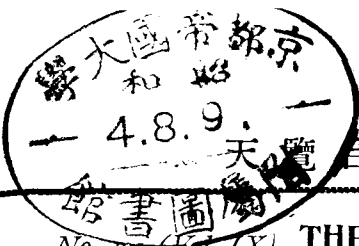 京都帝國大學
昭和
4.8.9.
天覽
圖書館
No.
THE